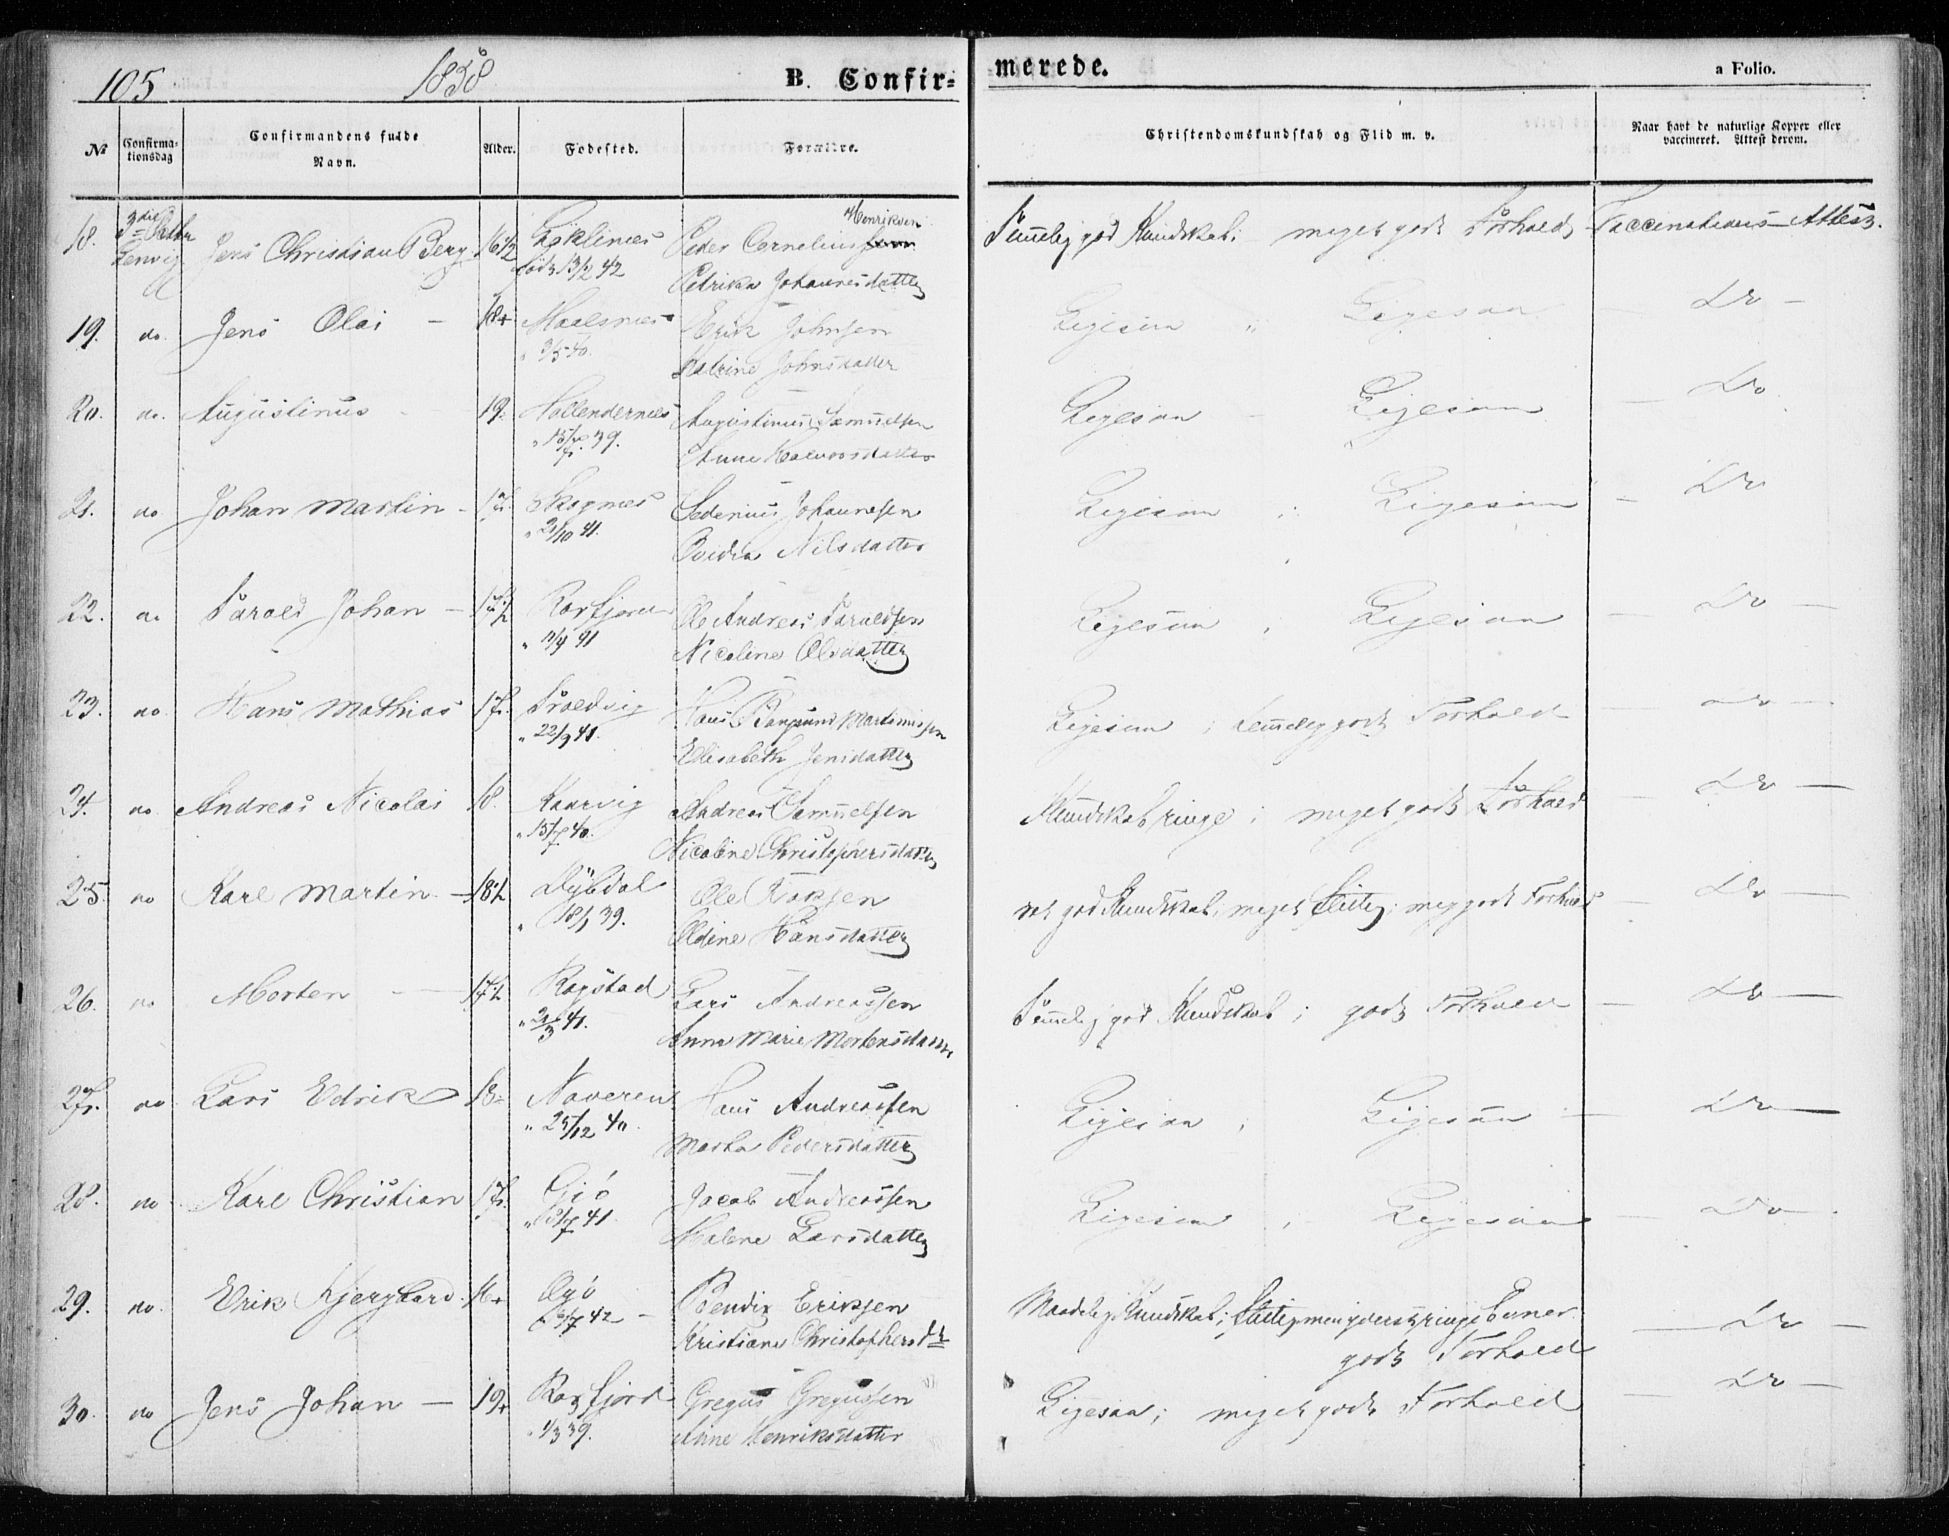 105 1858 B. Confirmerede. a Folio.
№ Confirmationsdag Confirmandens fulde Navn. Alder. Fødested. Forældre. Christendomskundskab og Flid m. v. Naar havt de naturlige Kopper eller vaccineret. Attest derom.
18. Lenvig Jens Christian Berg 16½ Gisklines Peder Cornelius Henriksen Temmelig god Kundskab; meget godt Forhold Vaccinations-Attest.
født 13/2 42 Petrika Johannesdatter
19. do. Jens Olai – 18 Maalsnes Erik Johnsen Ligesaa Ligesaa – Do –
" 3/5 40. Katrine Johnsdatter
20. do. Augustinus 19. Hollendernes Augustinus Samuelsen Ligesaa – Ligesaa – Do
39. Anne Halvorsdatter
21. do Johan Martin – 17. Skognes Sedenius Johannesen Ligesaa ; Ligesaa – Do
" 21/10 41. Ovidia Nilsdatter
22. do Tarald Johan – 17½ Rosfjord Ole Andreas Taraldsen Ligesaa , Ligesaa – Do –
" 11/4 41 Nicoline Olsdatter
23. do. Hans Mathias 17. Troldvig Hans Martinussen Ligesaa ; temmelig godt Forhold – Do –
" 22/9 41. Elisabeth Jensdatter
24. do Andreas Nicolai 18. Kaarvig Andreas Samuelsen Kundskab ringe ; meget godt Forhold – Do –
" 15/7 40. Nicoline Christophersdatter
25. do Karl Martin – 18½ Dybdal Ole ret god Kundskab, meget flittig; meg. godt Forhold – Do –
39. Oldine Hansdatter
26. do Morten – 17½ Rogstad Lars Andreassen Temmelig god Kundskab ; godt Forhold – Do –
" 21/3 41. Anne Marie Mortensdatter
27. do Lars Edrik 18 Naveren Hans Andreassen Ligesaa ; Ligesaa – Do –
" 25/12 40. Marta Pedersdatter
28. do Karl Christian 17. Gjø Jacob Andreassen Ligesaa , Ligesaa – Do –
41. Malene Larsdatter
29. do. Erik Kjergaard. 16 Øyø Bendix Eriksen Maadelig Kundskab; flittig men yderst ringe Evner. – Do –
42 – Kristiane Christophersdr godt Forhold
30. do Jens Johan – 19 Rosfjord Gregus Gregussen Ligesaa; meget godt Forhold – Do –
" 1/3 39. Anne Henriksdatter